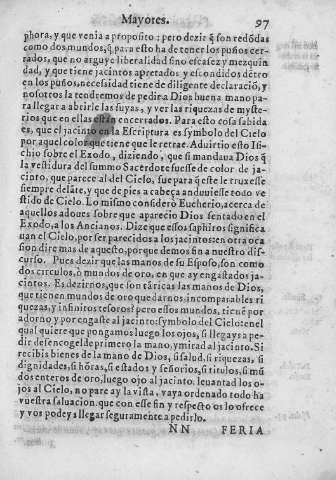 Mayores. 97
phora, y que venia a proposito; pero dezir q̃ son redõdas
como dos mundos, q̃ para esto ha de tener los puños cer-
rados, que no arguye liberalidad sino escasez y mezquin
dad, y que tiene jacintos apretados y escondidos detro
en los puños, necessidad tiene de diligente declaració, y
nosotros la tendremos de pedir a Dios buena mano pa-
ra llegar a abrirle las suyas, y ver las riquezas de myste-
rios que en ellas están encerrados. Para esto cosa sabida
es, que el jacinto en la Escriptura es symbolo del Cielo
por aquel color que tiene que le retrae. Aduirtio esto Isi-
chio sobre el Exodo, diziendo, que si mandaua Dios q̃
la vestidura del summo Sacerdote fuesse de color de ja-
cinto, que parece al del Cielo, fue para q̃ este le truxesse
siempre delãte, y que de pies a cabeça anduuiesse todo ve
stido de Cielo. Lo mismo consideró Eucherio, acerca de
aquellos adoues sobre que aparecio Dios sentado en el
Exodo, a los Ancianos. Dize que essos saphiros significa
uan el Cielo, por ser parecidos a los jacintos: en otra oca
sion diremas de aquesto, porque demos fin a nuestro dis-
curso. Pues dezir que las manos de su Esposo, son como
dos circulos, ò mundos de oro, en que ay engastados ja-
cintos. Es dezirnos, que son tã ricas las manos de Dios,
que tienen mundos de oro que darnos, incomparables ri
quezas, y infinitos tesoros: pero essos mundos, tiené por
adorno y por engaste al jacinto: symbolo del Cielo tenel
qual quiere que pongamos luego los ojos, si llegays a pe-
dir desencogelde primero la mano, y mirad al jacinto. Si
recibis bienes de la mano de Dios, si salud, si riquezas, si
dignidades, si hóras, si estados y señorios, si titulos, si mũ
dos enteros de oro, luego ojo al jacinto, leuantad los o-
jos al Cielo, no pare ay la vista, vaya ordenado todo ha
vuestra saluacion, que con esse fin y respecto os lo ofrece
y vos podeys llegar seguramente a pedirlo.
NN FERIA